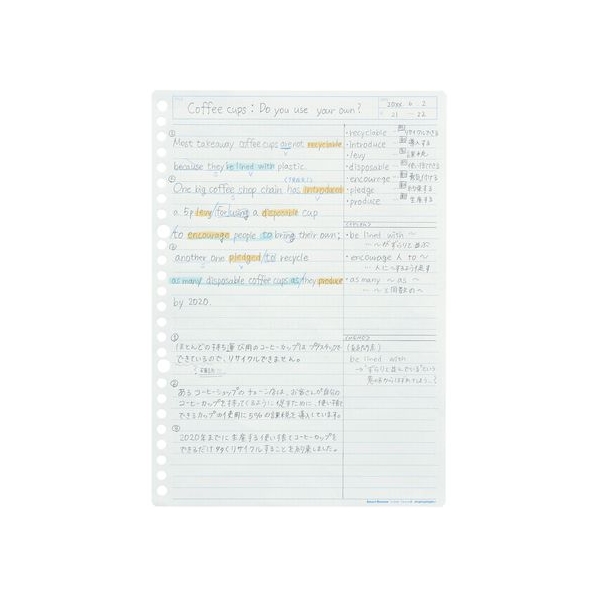 Coffee cups : Do you use your own?
20XX 6 2
21 - 22
①
Most takeaway coffee cups are not recyclable
because they be lined with plastic.
②
One big coffee shop chain has introduced
a 5p levy for using a disposable cup
to encourage people to bring their own;
③
another one pledged to recycle
as many disposable coffee cups as they produce
by 2020.
・recyclable リサイクルできる
・introduce 導入する
・levy 課税
・disposable 使い捨てできる
・encourage 勇気づける
・pledge 約束する
・produce 生産する
・be lined with ~
~がずらりと並ぶ
・encourage 人 to ~
人に~するよう促す
・as many ~ as ~
~と同数の~
①
ほとんどの持ち運び用のコーヒーカップは プラスチックで
できているので、リサイクルできません。
②
あるコーヒーショップのチェーン店は、お客さんが自分の
コーヒーカップを持ってくるように促すために、使い捨て
できるカップの使用に5%の課税を導入しています。
③
2020年までに生産する使い捨てコーヒーカップを
できるだけ多くリサイクルすることを約束しました。
be lined with
→"ずらりと並んでいる"という